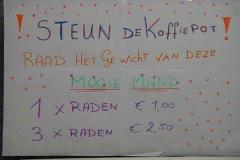 ! STEUN DE KOFFIEPOT !
RAAD HET GEWICHT VAN DEZE
MOOIE MAND
1 x RADEN € 1,00
3 x RADEN € 2,50